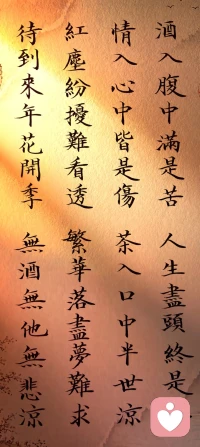 酒入腹中滿是苦 人生盡頭終是
情入心中皆是傷 茶入口中半世涼
紅塵紛擾難看透 繁華落盡夢難求
待到來年花開季 無酒無他無悲涼